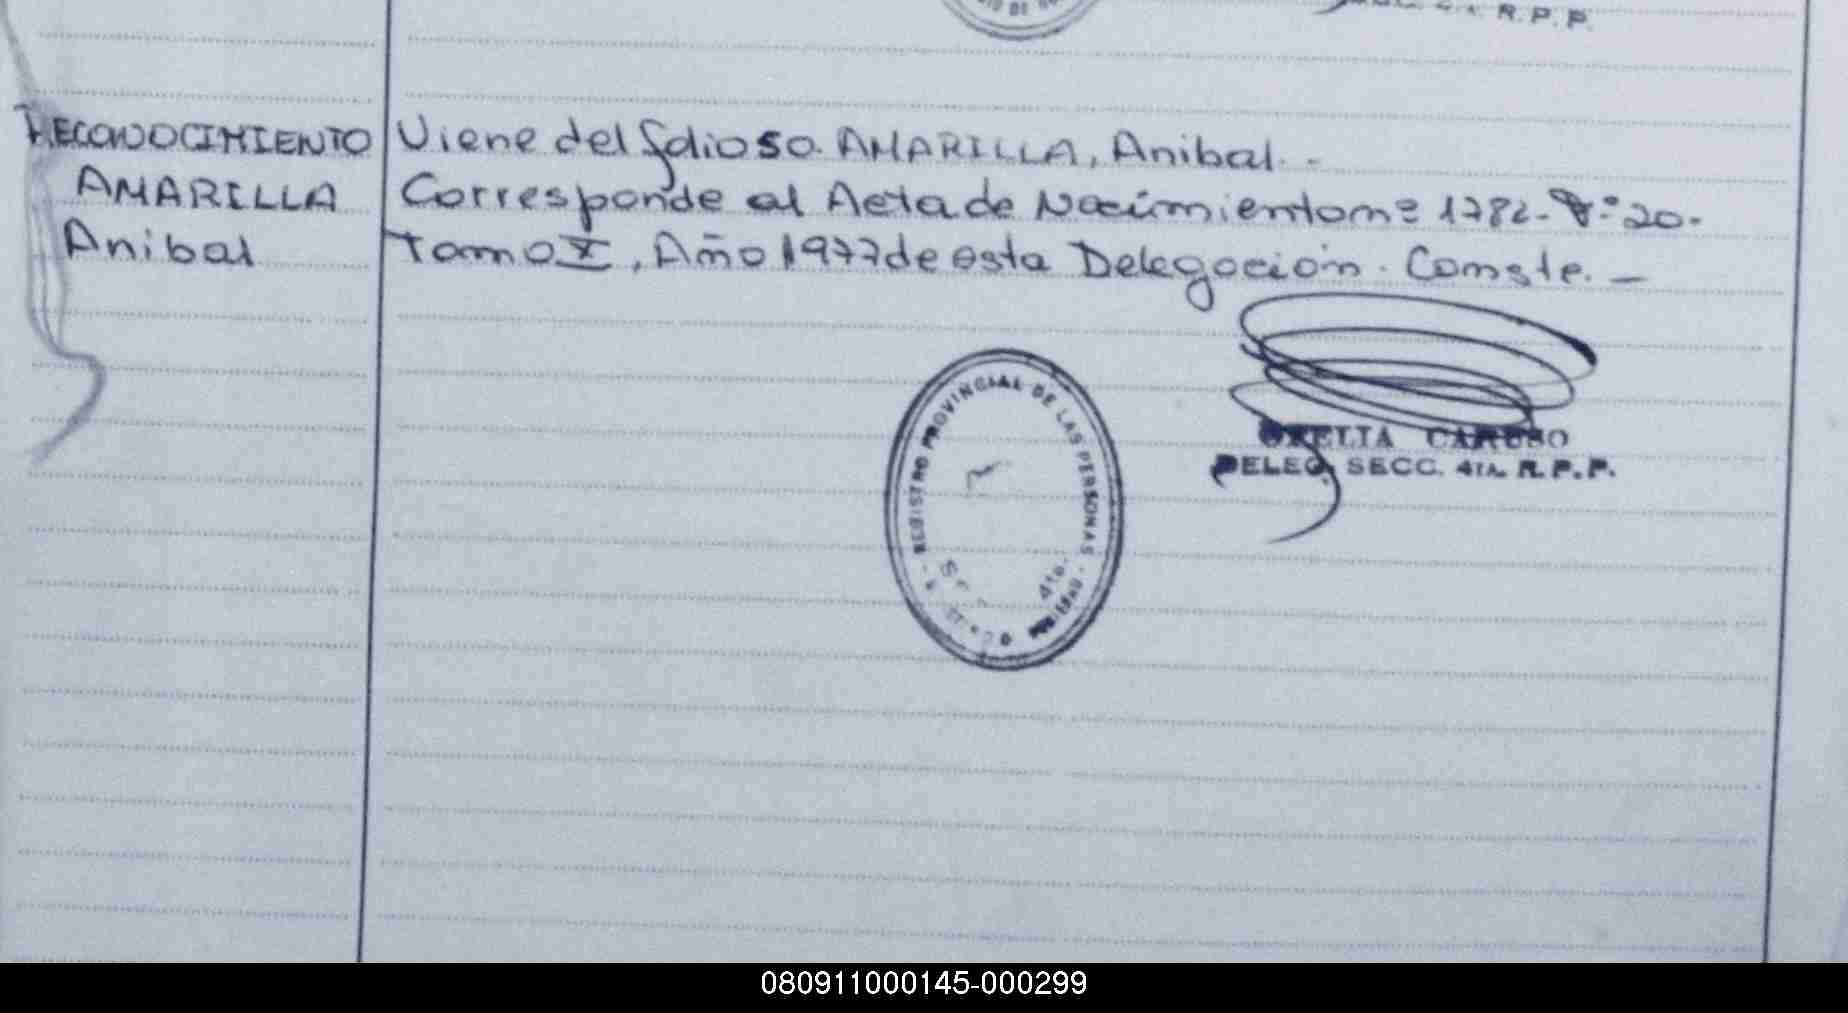 R.P.P.
RECONOCIMIENTO
AMARILLA
Anibal
Viene del folio 50. AMARILLA, Anibal.-
Corresponde al Acta de Nacimiento nº 1782- Fº 20-
Tomo X, Año 1977 de esta Delegación. Conste.-
CARUSO
DELEG. SECC. 4TA. R.P.P.
REGISTRO PROVINCIAL DE LAS PERSONAS
4ta.
080911000145-000299